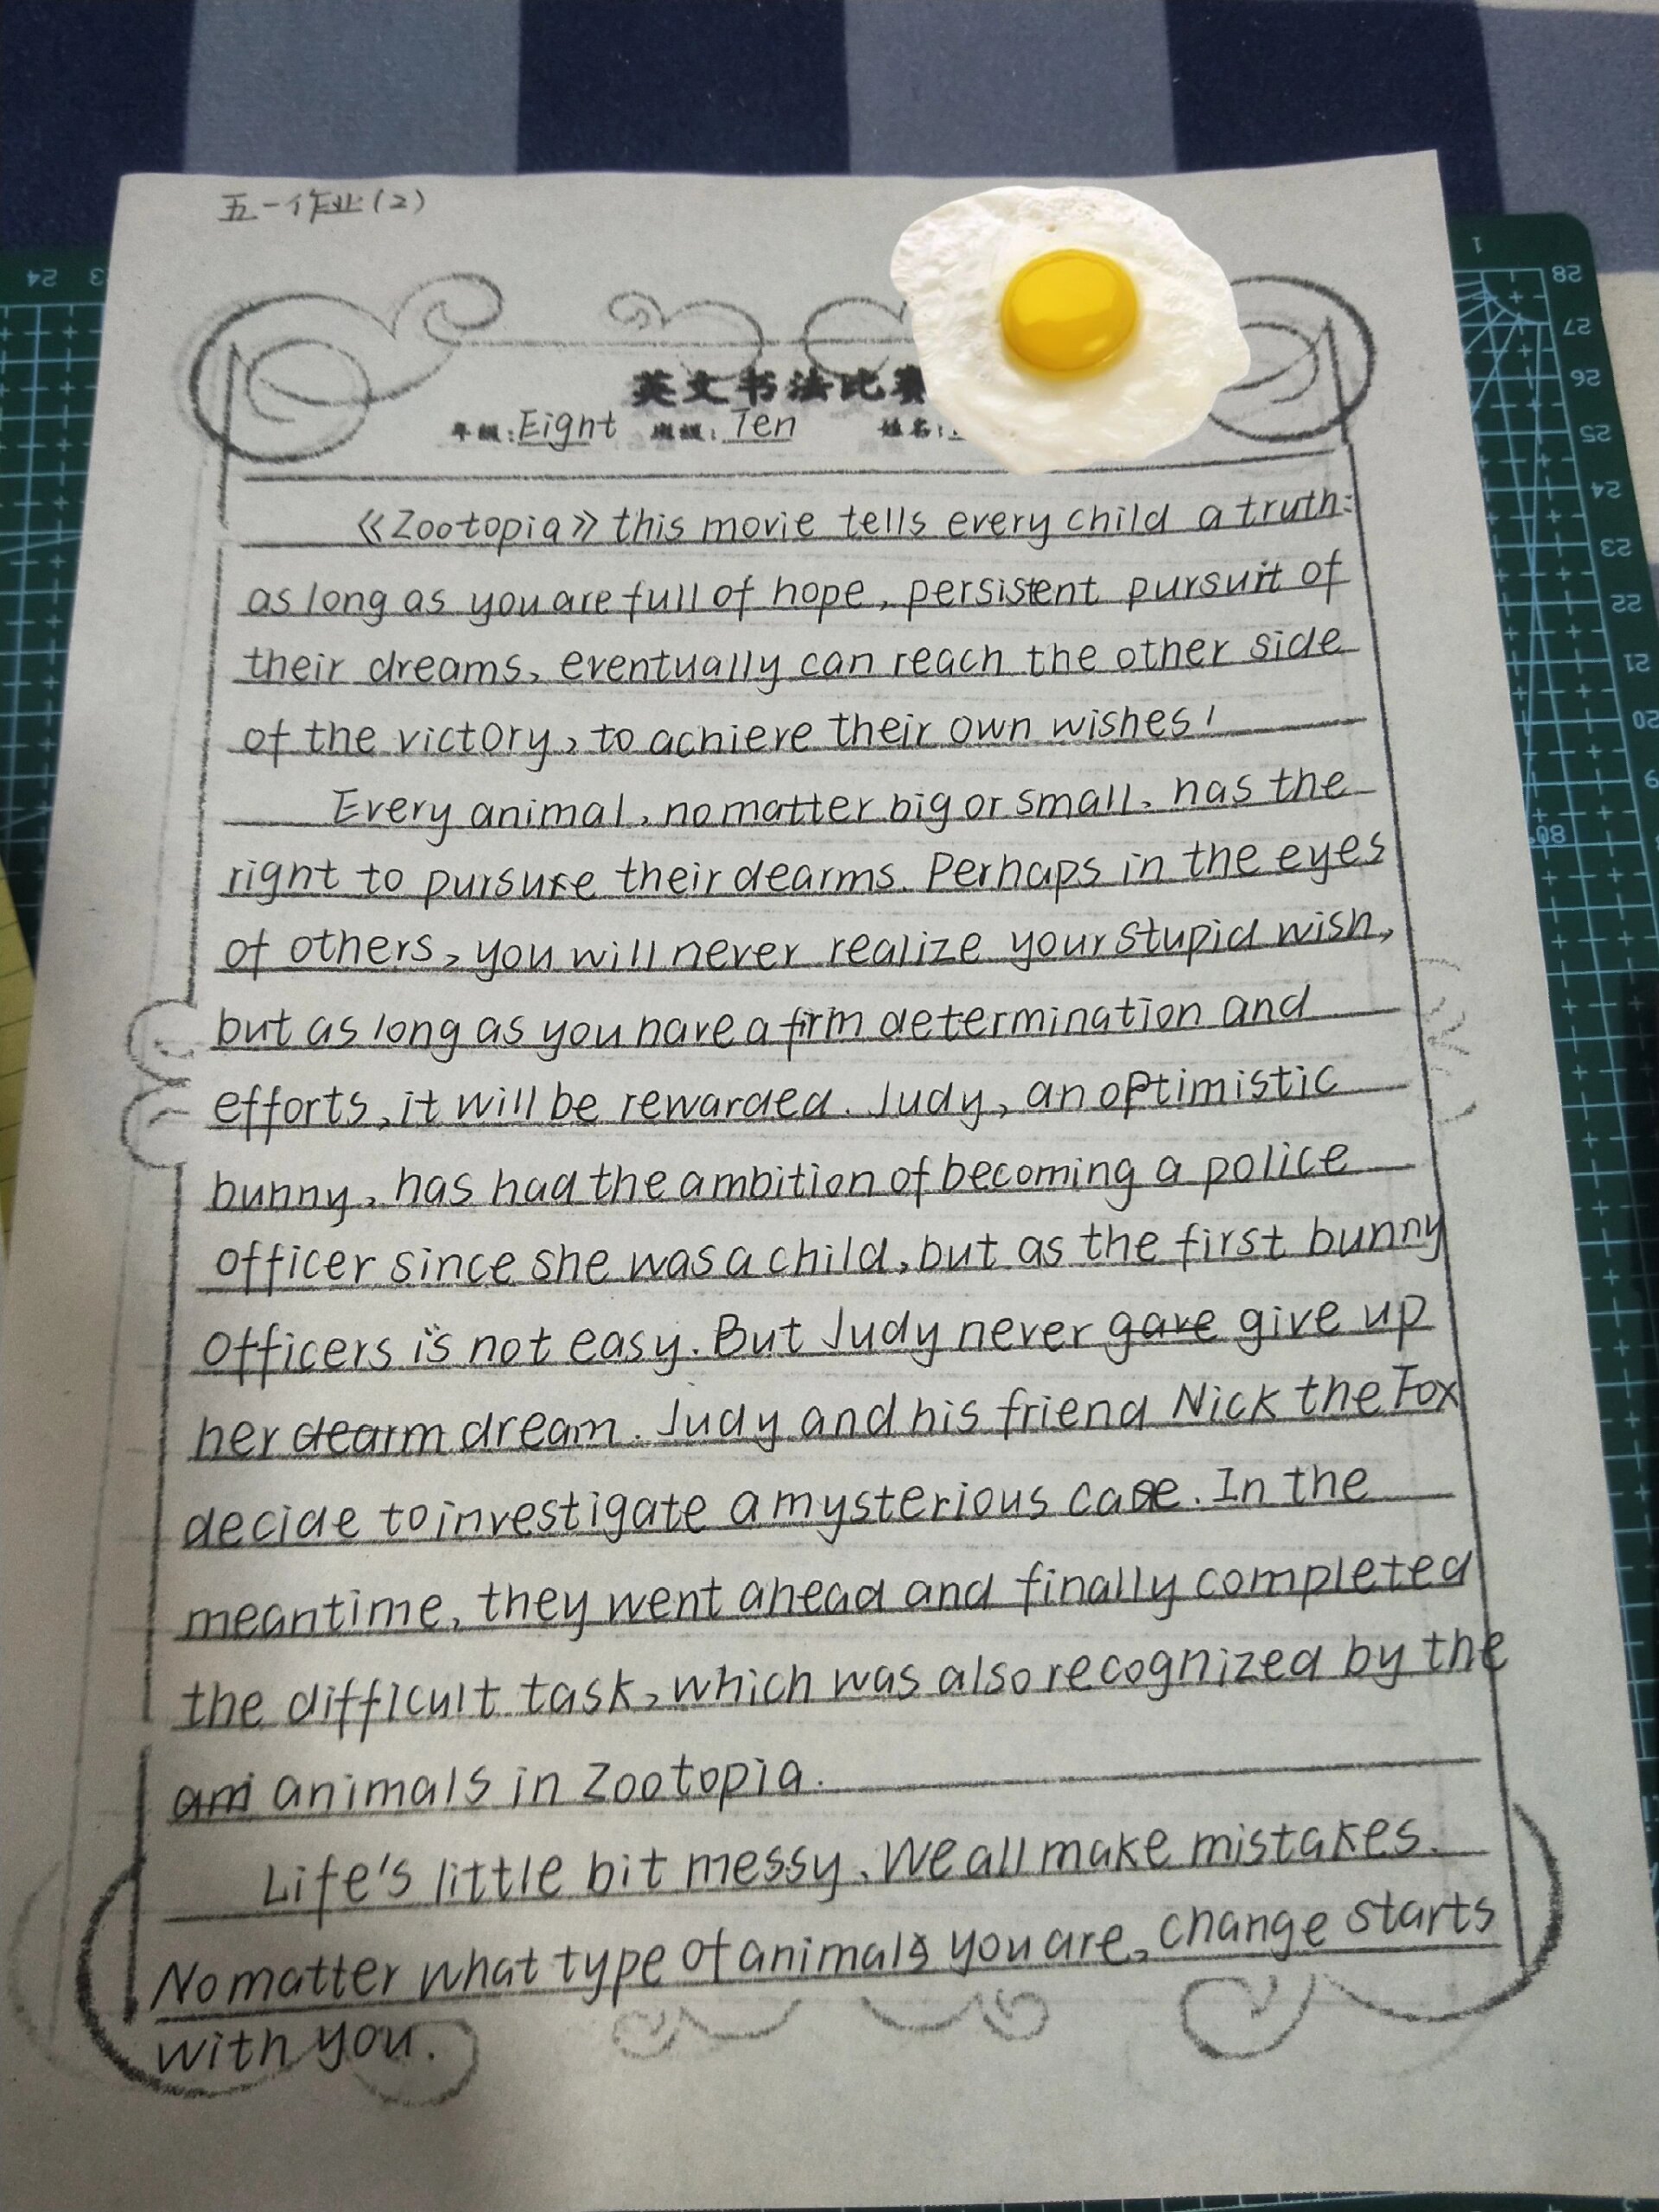 五一作业(2)
英文书法比赛
年级:Eight 班级:Ten 姓名:
《Zootopia》this movie tells every child a truth:
as long as you are full of hope, persistent pursuit of
their dreams, eventually can reach the other side
of the victory, to achieve their own wishes!
Every animal, no matter big or small, has the
right to pursure their dearms. Perhaps in the eyes
of others, you will never realize your stupid wish,
but as long as you have a firm determination and
efforts, it will be rewarded. Judy, an optimistic
bunny, has had the ambition of becoming a police
officer since she was a child, but as the first bunny
officers is not easy. But Judy never gave give up
her dearm dream. Judy and his friend Nick the Fox
decide to investigate a mysterious case. In the
meantime, they went ahead and finally completed
the difficult task, which was also recognized by the
ami animals in Zootopia.
Life's little bit messy. We all make mistakes.
No matter what type of animals you are, change starts
with you.
24 3
1 28
27
26
25
24
23
22
21
20
9
80°